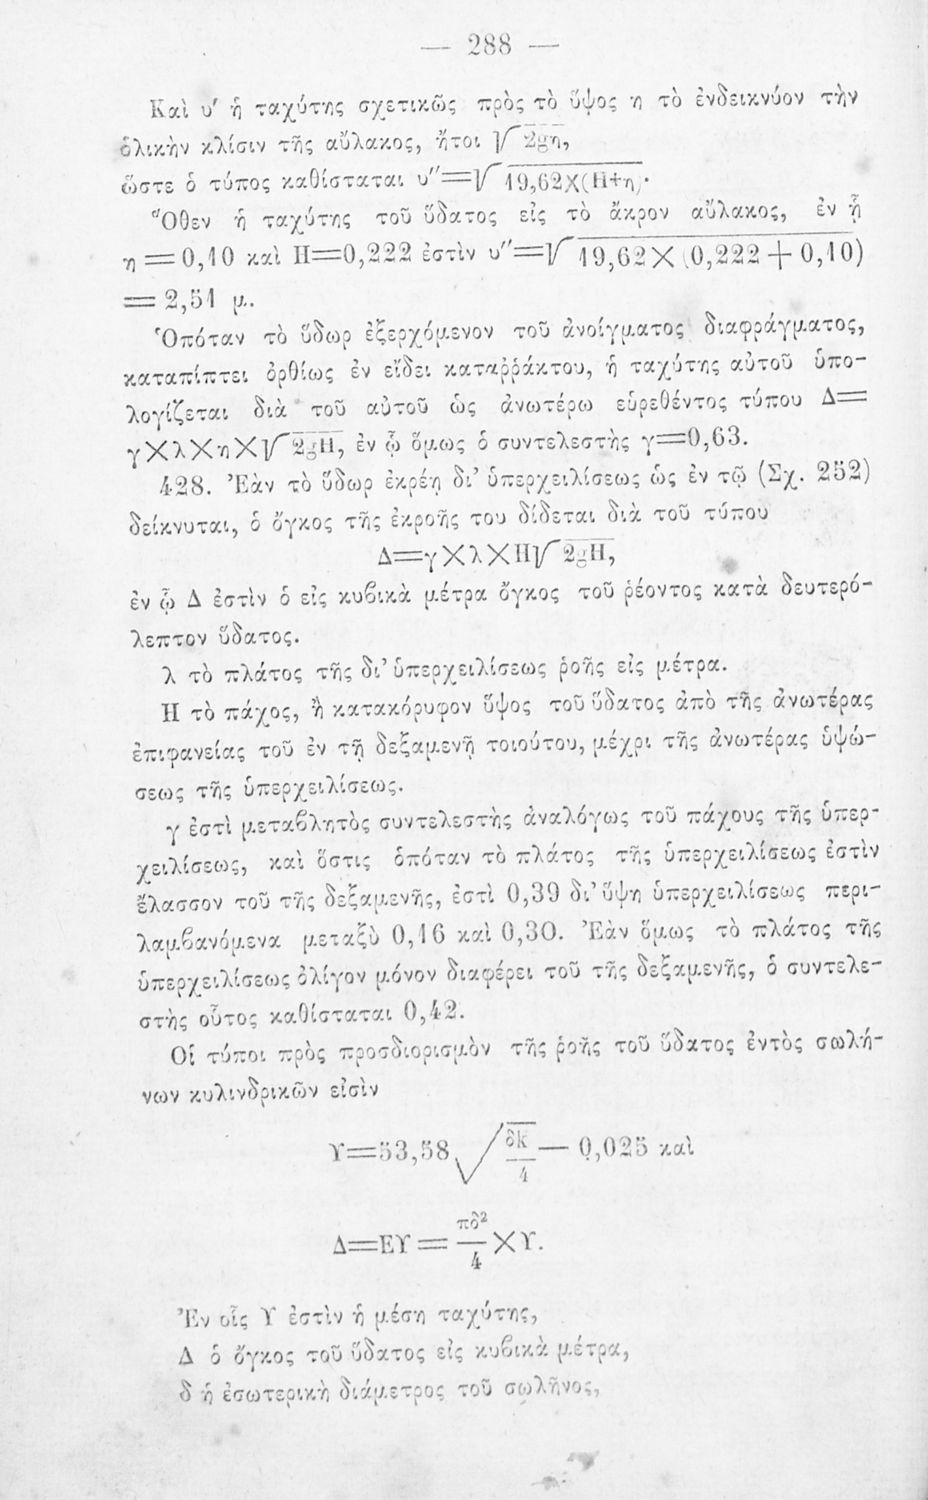 — 288 —
Καὶ υ′ ἡ ταχύτης σχετικῶς πρὸς τὸ ὕψος η τὸ ἐνδεικνύον τὴν
ὁλικὴν κλίσιν τῆς αὔλακος, ἤτοι √2gη,
ὥστε ὁ τύπος καθίσταται υ″=√19,62Χ(Η+η)·
Ὅθεν ἡ ταχύτης τοῦ ὕδατος εἰς τὸ ἄκρον αὔλακος, ἐν ᾗ
η = 0,10 καὶ Η=0,222 ἐστὶν υ″=√19,62Χ(0,222+0,10)
= 2,51 μ.
Ὁπόταν τὸ ὕδωρ ἐξερχόμενον τοῦ ἀνοίγματος διαφράγματος,
καταπίπτει ὀρθίως ἐν εἴδει καταῤῥάκτου, ἡ ταχύτης αὐτοῦ ὑπο-
λογίζεται διὰ τοῦ αὐτοῦ ὡς ἀνωτέρω εὑρεθέντος τύπου Δ=
γΧλΧηΧ√2gΗ, ἐν ᾧ ὅμως ὁ συντελεστὴς γ=0,63.
428. Ἐὰν τὸ ὕδωρ ἐκρέῃ δι᾽ ὑπερχειλίσεως ὡς ἐν τῷ (Σχ. 252)
δείκνυται, ὁ ὄγκος τῆς ἐκροῆς του δίδεται διὰ τοῦ τύπου
Δ=γΧλΧΗ√2gΗ,
ἐν ᾧ Δ ἐστὶν ὁ εἰς κυβικὰ μέτρα ὄγκος τοῦ ῥέοντος κατὰ δευτερό-
λεπτον ὕδατος.
λ τὸ πλάτος τῆς δι᾽ ὑπερχειλίσεως ῥοῆς εἰς μέτρα.
Η τὸ πάχος, ἢ κατακόρυφον ὕψος τοῦ ὕδατος ἀπὸ τῆς ἀνωτέρας
ἐπιφανείας τοῦ ἐν τῇ δεξαμενῇ τοιούτου, μέχρι τῆς ἀνωτέρας ὑψώ-
σεως τῆς ὑπερχειλίσεως.
γ ἐστὶ μεταβλητὸς συντελεστὴς ἀναλόγως τοῦ πάχους τῆς ὑπερ-
χειλίσεως, καὶ ὅστις ὁπόταν τὸ πλάτος τῆς ὑπερχειλίσεως ἐστὶν
ἔλασσον τοῦ τῆς δεξαμενῆς, ἐστὶ 0,39 δι᾽ ὕψη ὑπερχειλίσεως περι-
λαμβανόμενα μεταξὺ 0,16 καὶ 0,30. Ἐὰν ὅμως τὸ πλάτος τῆς
ὑπερχειλίσεως ὀλίγον μόνον διαφέρει τοῦ τῆς δεξαμενῆς, ὁ συντελε-
στὴς οὗτος καθίσταται 0,42.
Οἱ τύποι πρὸς προσδιορισμὸν τῆς ῥοῆς τοῦ ὕδατος ἐντὸς σωλή-
νων κυλινδρικῶν εἰσὶν
Υ=53,58 √δk/4 — 0,025 καὶ
Δ=ΕΥ = πδ²/4 ΧΥ.
Ἐν οἷς Υ ἐστὶν ἡ μέση ταχύτης,
Δ ὁ ὄγκος τοῦ ὕδατος εἰς κυβικὰ μέτρα,
δ ἡ ἐσωτερικὴ διάμετρος τοῦ σωλῆνος,